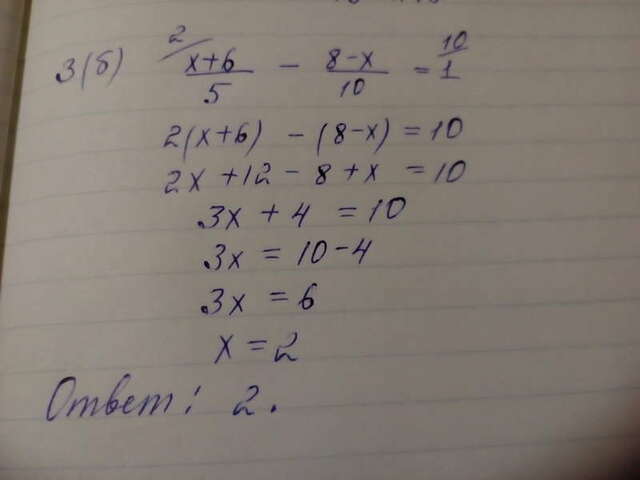 3(б) ²/ (x+6)/5 - (8-x)/10 = ¹⁰/ 1
2(x+6) - (8-x) = 10
2x +12 - 8 + x = 10
3x + 4 = 10
3x = 10 - 4
3x = 6
x = 2
Ответ: 2.